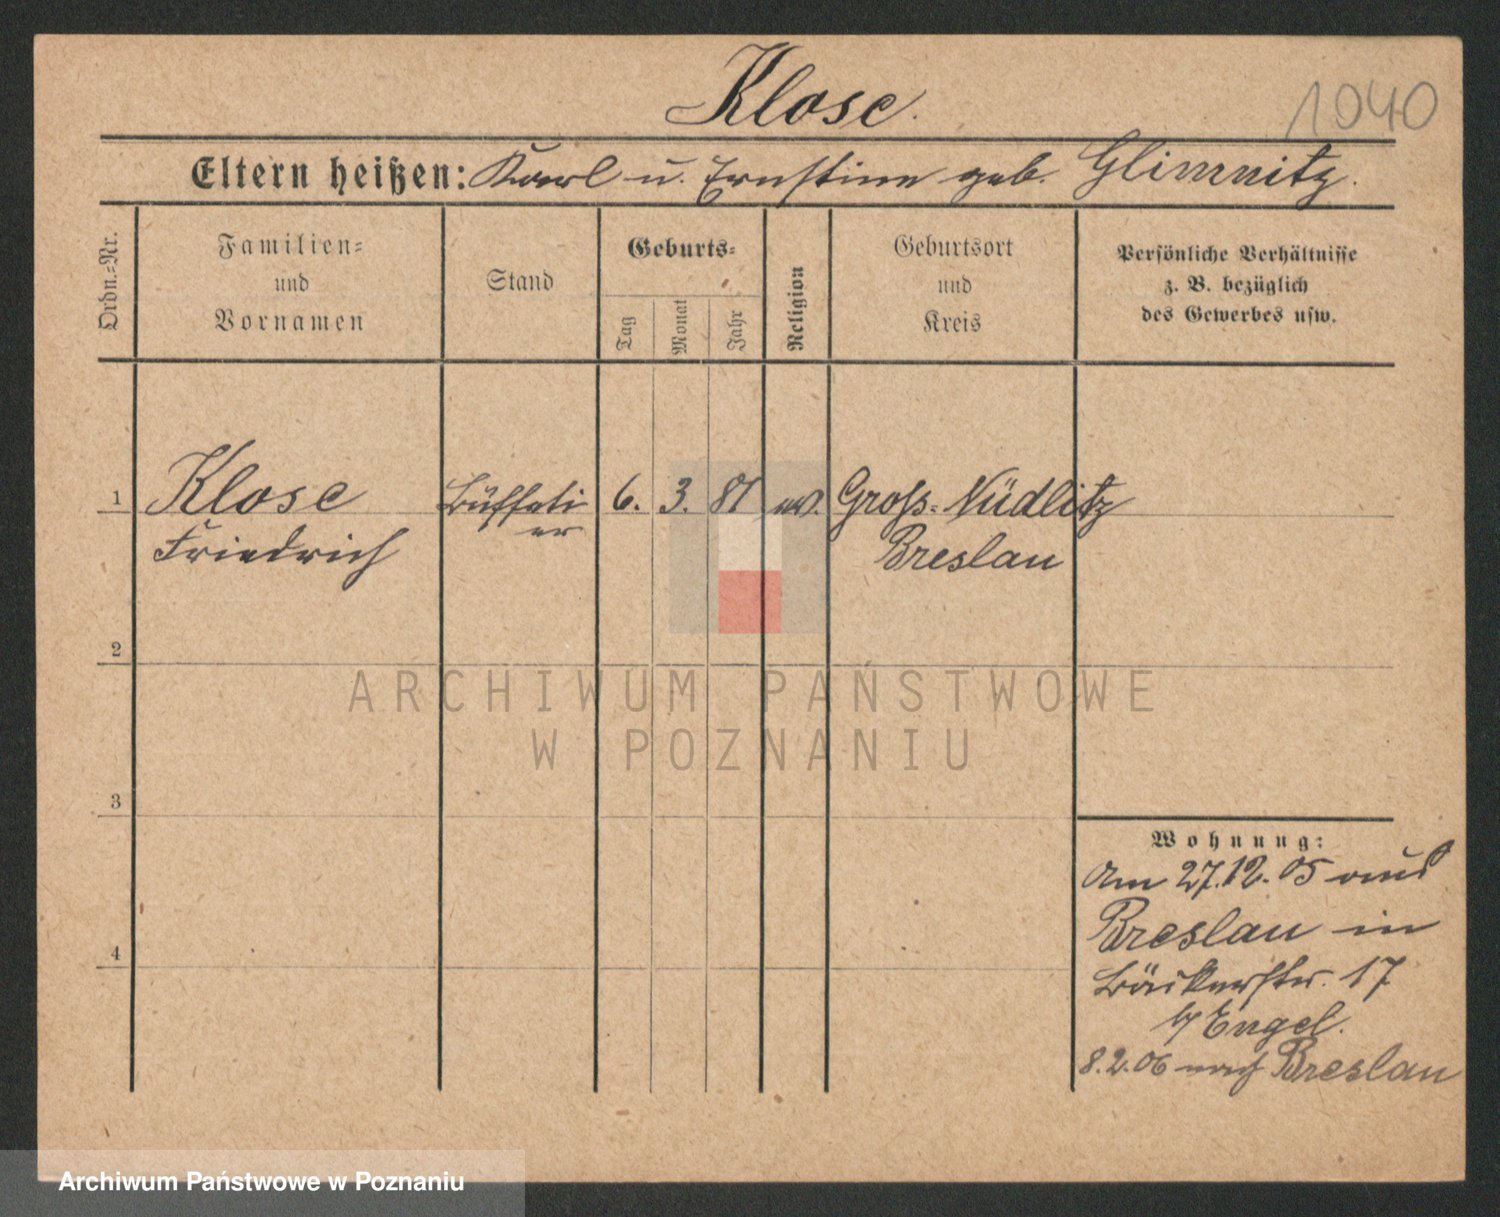 Klose.
1040
Eltern heißen: Karl u. Ernstine geb. Glimnitz.
Ordn.=Nr.
Familien=
und
Vornamen
Stand
Geburts=
Tag
Monat
Jahr
Religion
Geburtsort
und
Kreis
Persönliche Verhältnisse
z. B. bezüglich
des Gewerbes usw.
1 Klose Büffeti 6. 3. 81 ev. Gross=Nüdlitz
Friedrich er Breslau
2
3
4
Wohnung:
Am 27.12.05 aus
Breslau in
Bäckerstr. 17
b/ Engel.
8.2.06 nach Breslau
ARCHIWUM PAŃSTWOWE
W POZNANIU
Archiwum Państwowe w Poznaniu